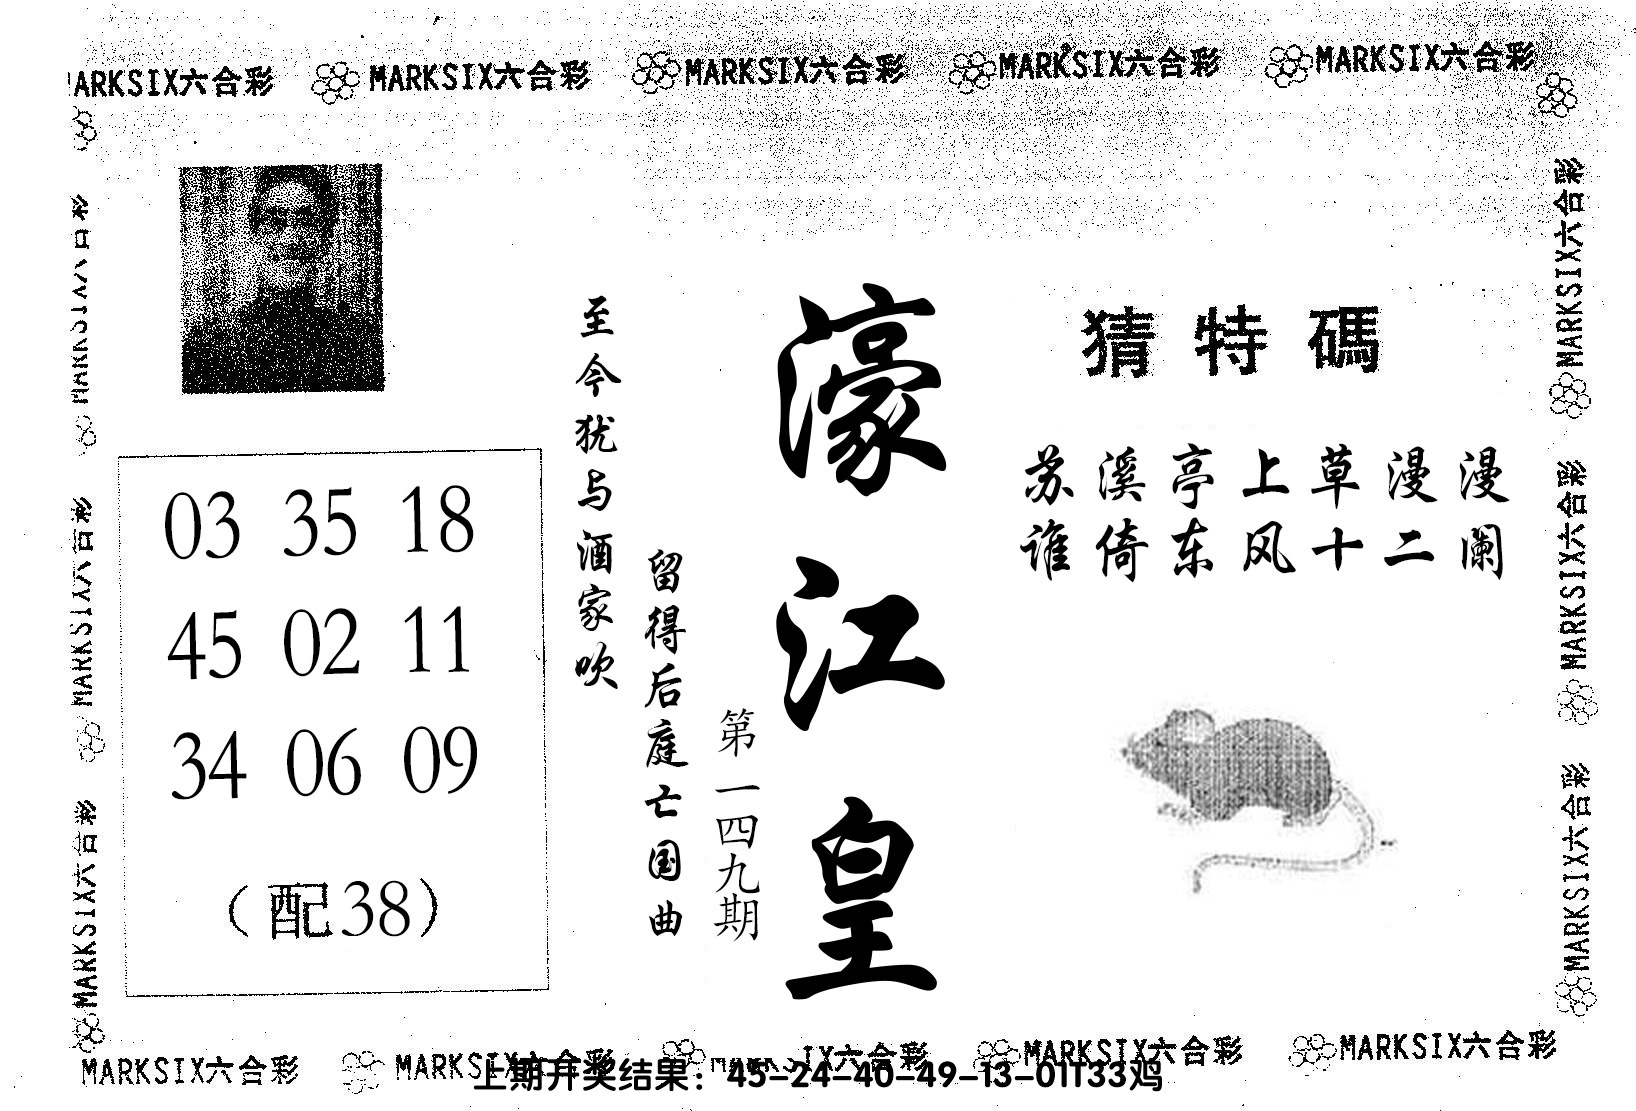 MARKSIX六合彩 MARKSIX六合彩 MARKSIX六合彩 MARKSIX六合彩
ARKSIX六合彩
猜特碼
苏溪亭上草漫漫
谁倚东风十二阑
濠江皇
第一四九期
留得后庭亡国曲
至今犹与酒家吹
03 35 18
45 02 11
34 06 09
（配38）
MARKSIX六合彩
MARKSIX六合彩
MARKSIX六合彩
MARKSIX六合彩
MARKSIX六合彩
MARKSIX六合彩
MARKSIX六合彩 MARKSIX六合彩 IX六合彩 MARKSIX六合彩 MARKSIX六合彩
上期开奖结果：45-24-40-49-13-01T33鸡